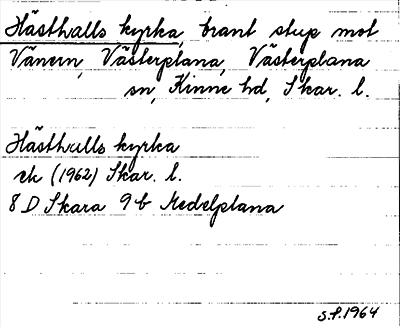 Hästhalls kyrka, brant stup mot
Vänern, Västerplana, Västerplana
sn, Kinne hd, Skar. l.
Hästhalls kyrka
ek (1962) Skar. l.
8 D Skara 9 b Medelplana
S.P. 1964